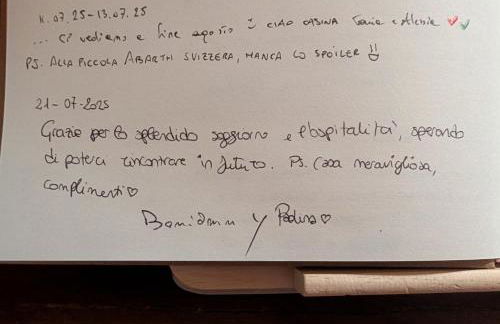 11.07.25-13.07.25
... ci vediamo a fine agosto :) CIAO CASINA Sonia e Alessia
PS. ALLA PICCOLA ABARTH SVIZZERA, MANCA LO SPOILER
21-07-2025
Grazie per lo splendido soggiorno e l'ospitalità, sperando
di poterci rincontrare in futuro. Ps. Casa meravigliosa,
complimenti♡
y ♡